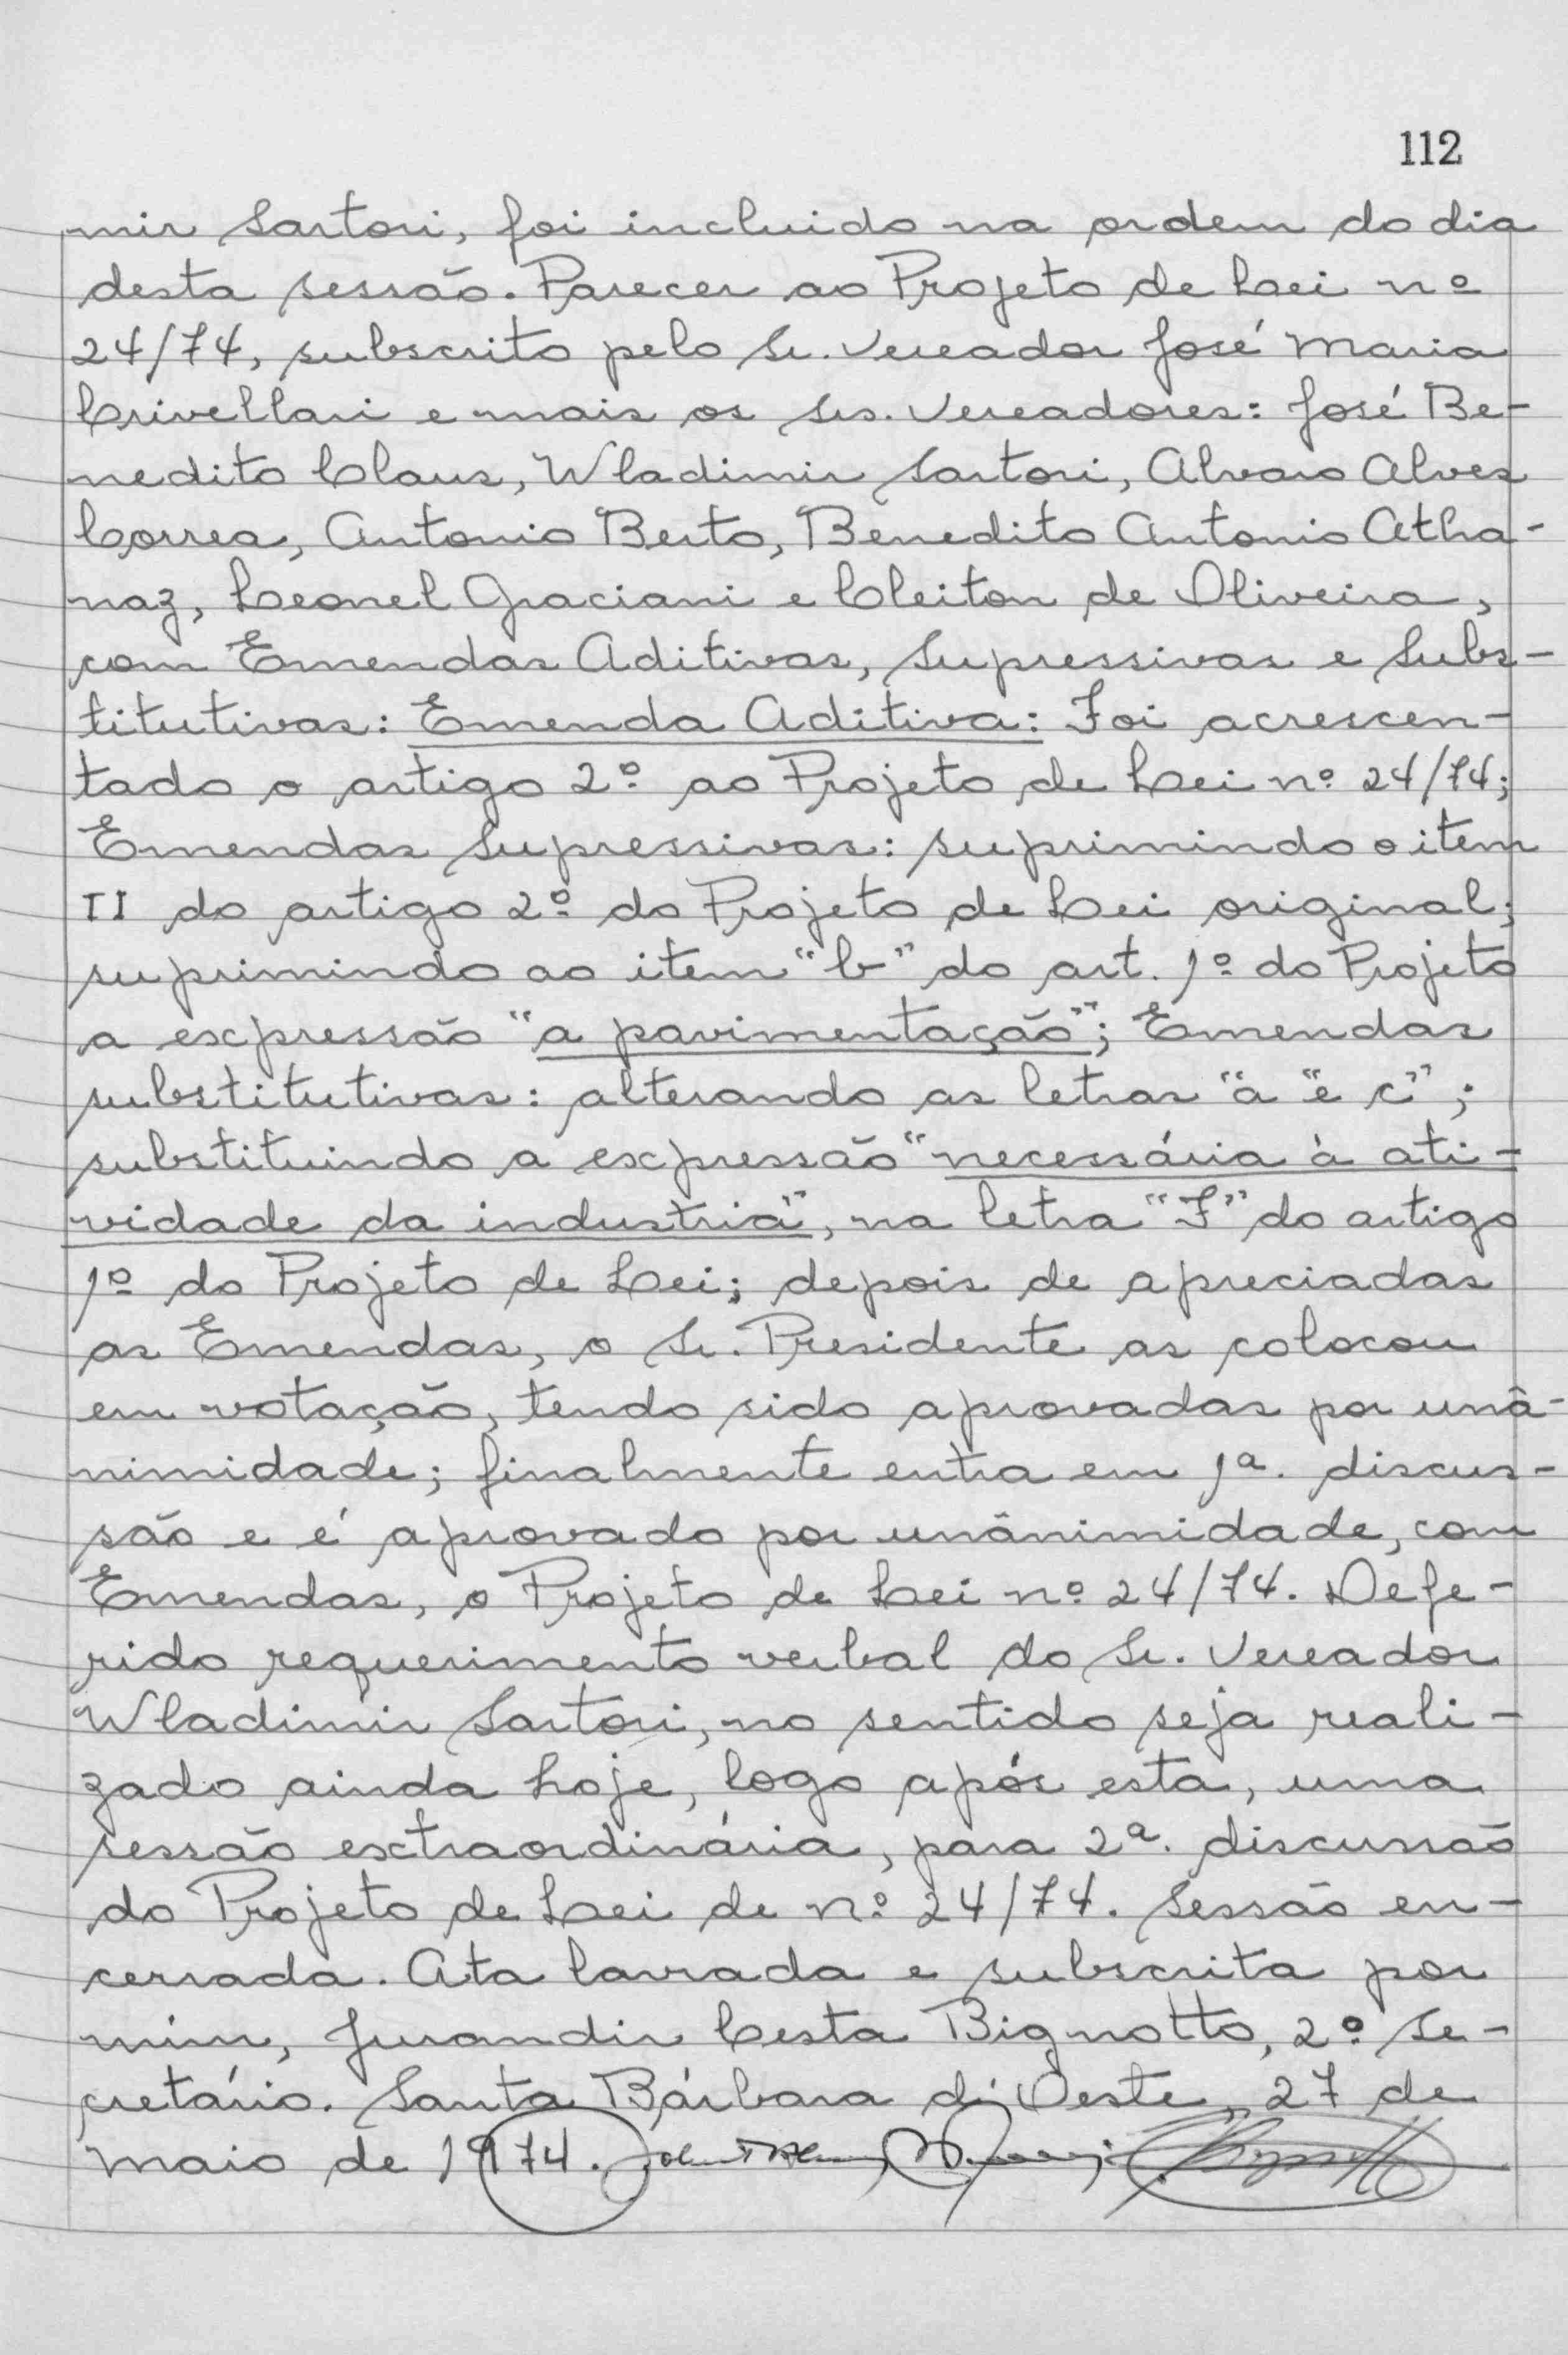 112
mir Sartori, foi incluido na ordem do dia
desta sessão. Parecer ao Projeto de Lei nº
24/74, subscrito pelo Sr. Vereador José Maria
Crivellari e mais os Srs. Vereadores: José Be-
nedito Claus, Wladimir Sartori, Alvaro Alves
Correa, Antonio Berto, Benedito Antonio Atha-
naz, Leonel Graciani e Cleiton de Oliveira,
com Emendas Aditivas, Supressivas e Subs-
titutivas: Emenda Aditiva: Foi acrescen-
tado o artigo 2º ao Projeto de Lei nº 24/74;
Emendas Supressivas: suprimindo o item
II do artigo 2º do Projeto de Lei original;
suprimindo ao item "b" do art. 1º do Projeto
a expressão "a pavimentação"; Emendas
substitutivas: alterando as letras "a "e c";
substituindo a expressão "necessária à ati-
vidade da industria", na letra "F" do artigo
1º do Projeto de Lei; depois de apreciadas
as Emendas, o Sr. Presidente as colocou
em votação, tendo sido aprovadas por unâ-
nimidade; finalmente entra em 1ª. discus-
são e é aprovado por unânimidade, com
Emendas, o Projeto de Lei nº 24/74. Defe-
rido requerimento verbal do Sr. Vereador
Wladimir Sartori, no sentido seja reali-
zado ainda hoje, logo após esta, uma
sessão extraordinária, para 2ª. discussão
do Projeto de Lei de nº 24/74. Sessão en-
cerrada. Ata lavrada e subscrita por
mim, Jurandir Cesta Bignotto, 2º Se-
cretário. Santa Bárbara d'Oeste, 27 de
maio de 1974.